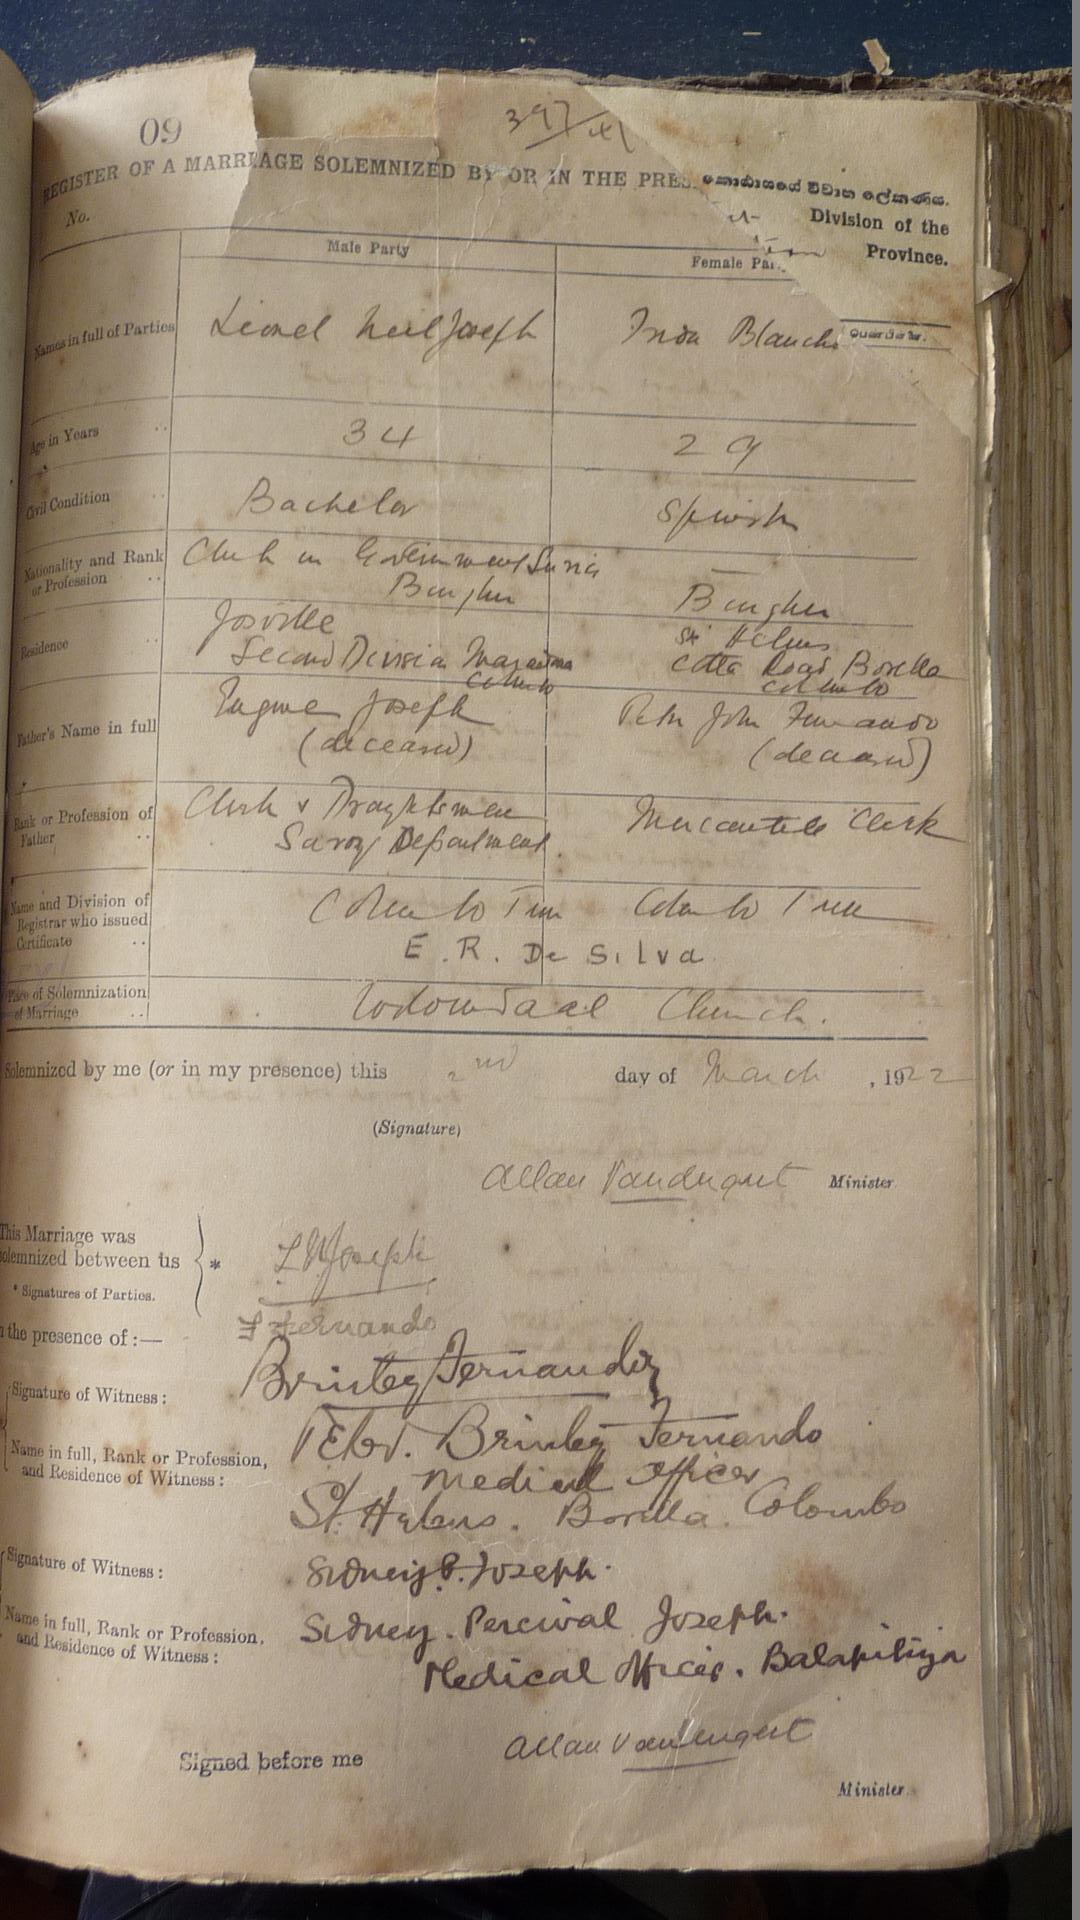 09
397
REGISTER OF A MARRIAGE SOLEMNIZED BY OR IN THE PRES
විවාහ ලේකණය.
No.
Division of the
Province.
Male Party
Female Par
Names in full of Parties
Lionel Neil Joseph
Blanche
Age in Years
34
29
Civil Condition
Bachelor
Spinster
Nationality and Rank or Profession
Clerk in Government Service
Burgher
—
Burgher
Residence
Josville
Second Division Maradana
Colombo
St Helens
Cotta Road Borella
Colombo
Father's Name in full
Eugene Joseph
(deceased)
Peter John Fernando
(deceased)
Rank or Profession of Father
Clerk & Draughtsman
Survey Department
Mercantile Clerk
Name and Division of Registrar who issued Certificate
Colombo Town
Colombo Town
E. R. De Silva
Place of Solemnization of Marriage
Wolvendaal Church.
Solemnized by me (or in my presence) this 2nd day of March, 1922
(Signature)
Allan Minister
This Marriage was
solemnized between us *
L N Joseph
* Signatures of Parties.
Fernando
the presence of :—
Signature of Witness :
Brinley Fernando
Name in full, Rank or Profession,
and Residence of Witness :
Brinley Fernando
Medical Officer
St. Helens. Borella. Colombo
Signature of Witness :
Sidney P. Joseph.
Name in full, Rank or Profession,
and Residence of Witness :
Sidney. Percival Joseph.
Medical Officer. Balapitiya
Signed before me
Allan
Minister.